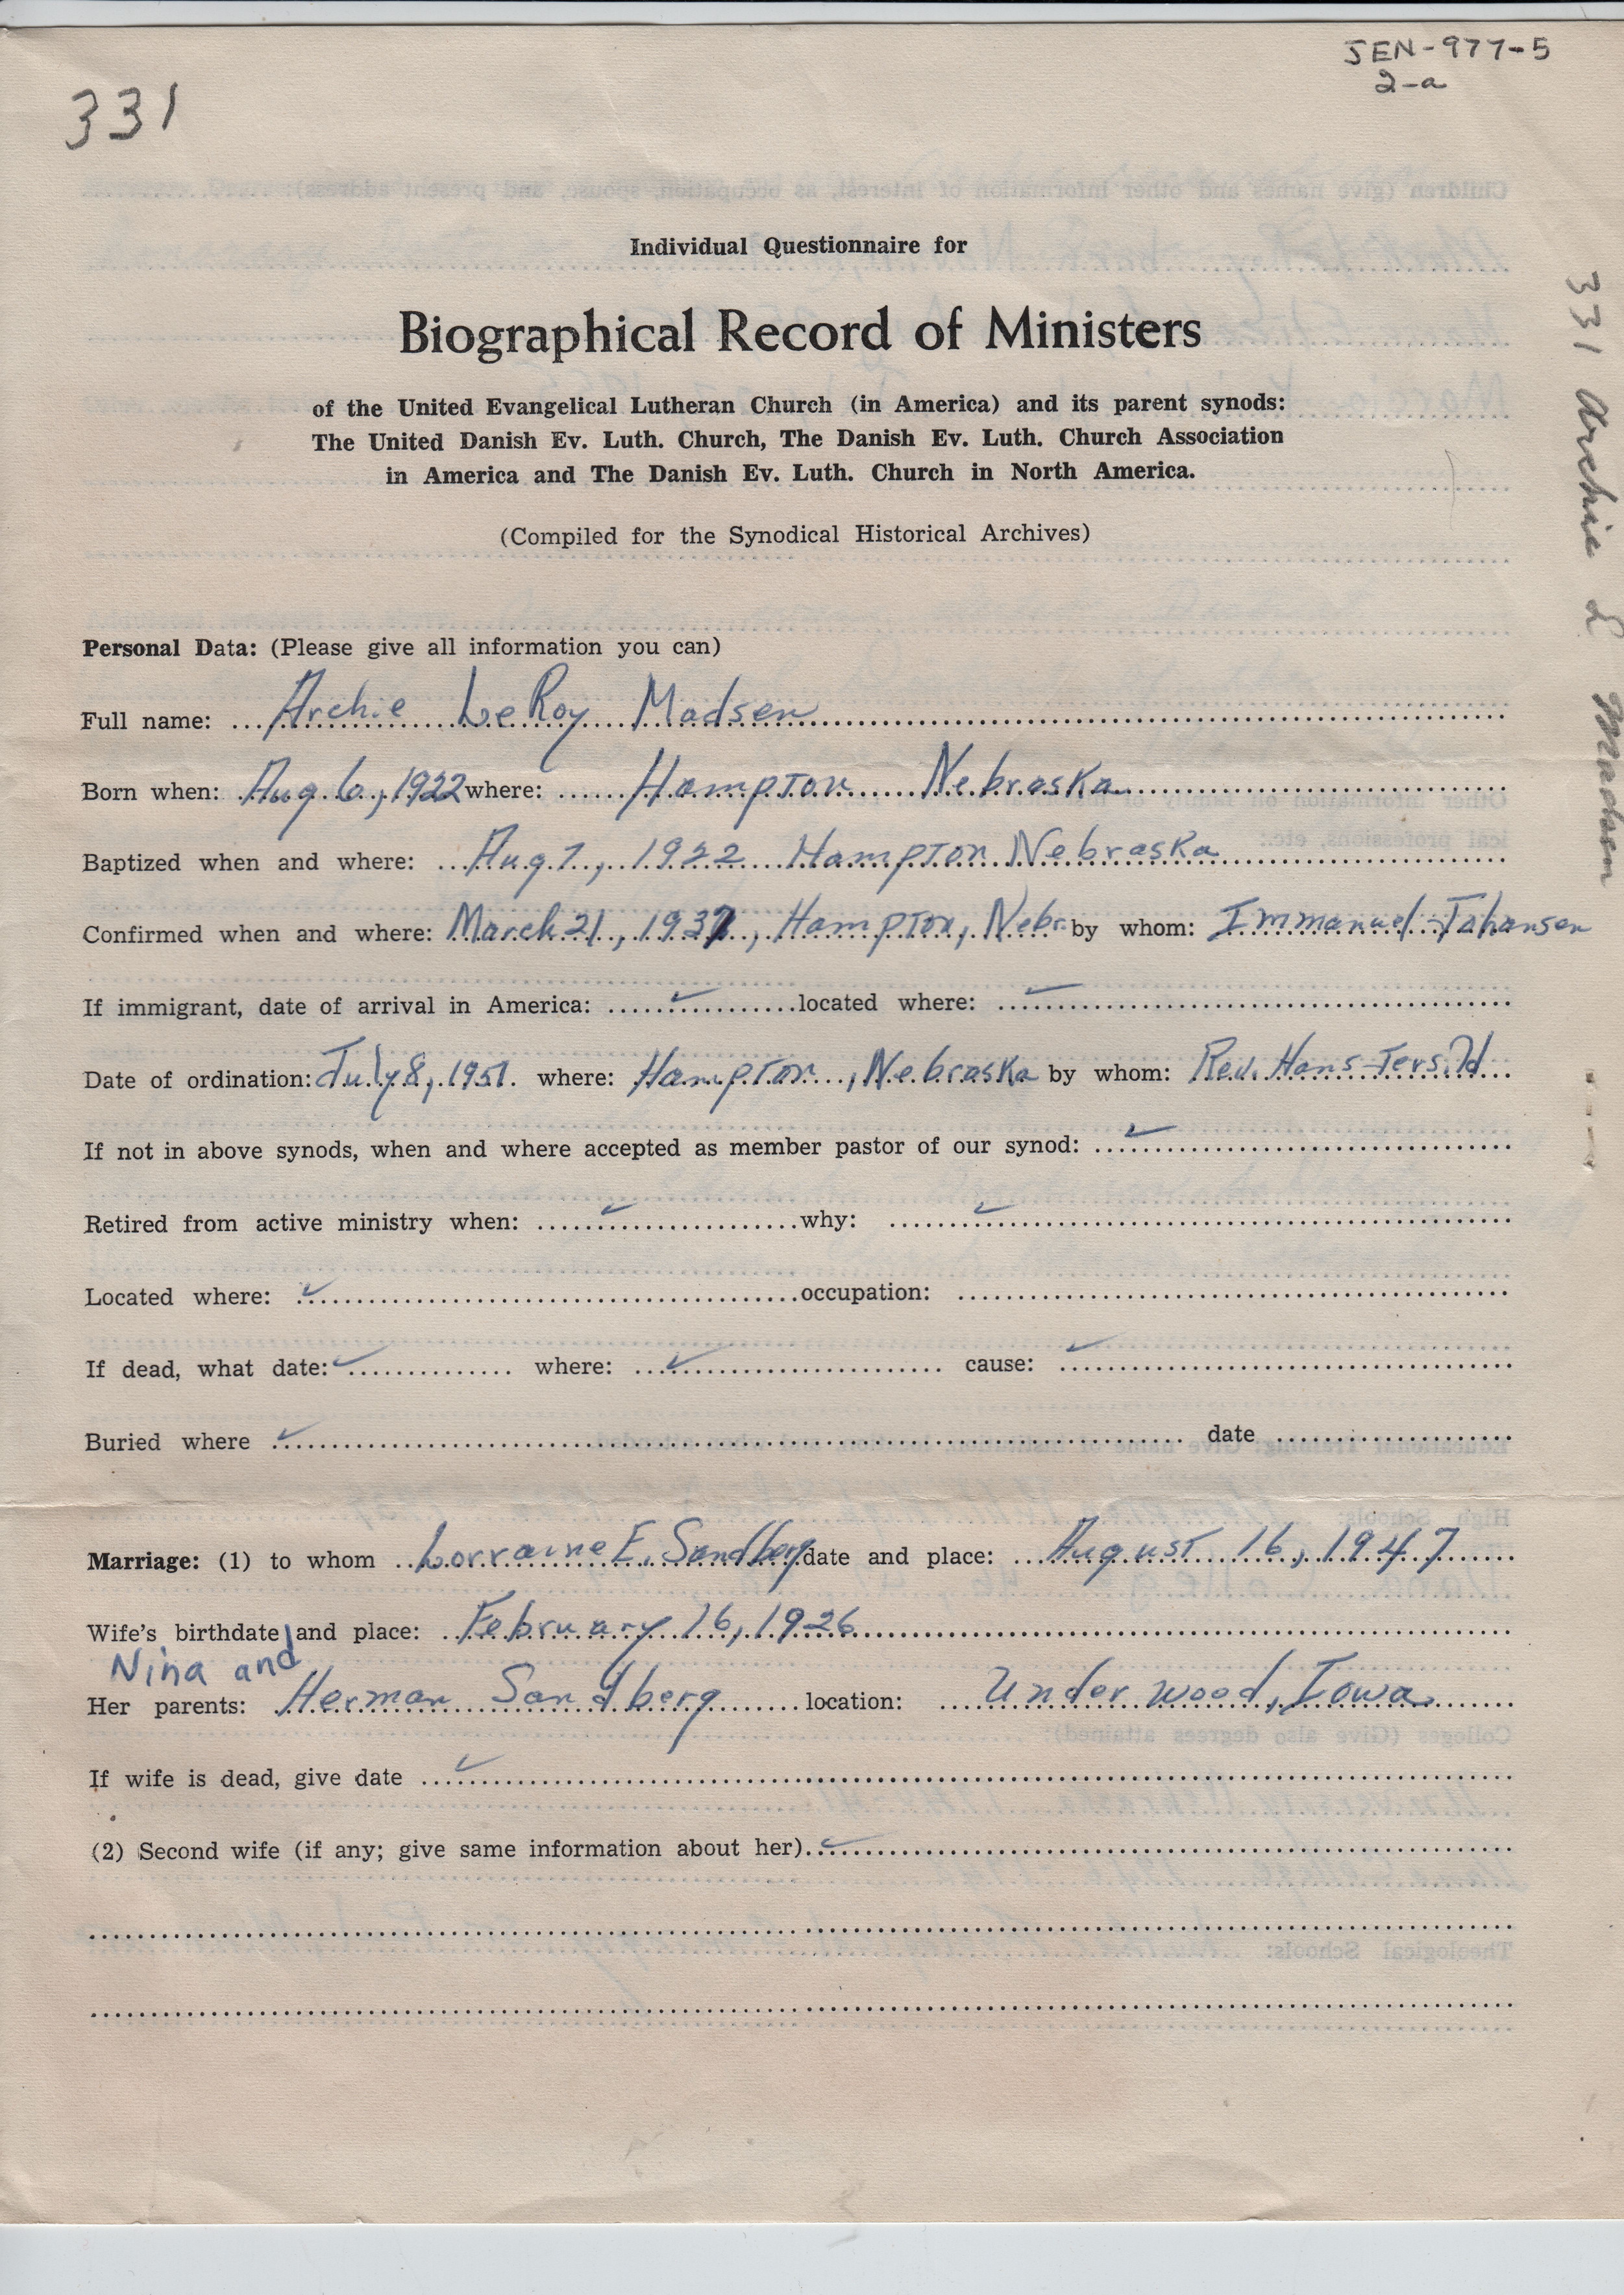 JEN-977-5
2-a
331
Individual Questionnaire for
Biographical Record of Ministers
of the United Evangelical Lutheran Church (in America) and its parent synods:
The United Danish Ev. Luth. Church, The Danish Ev. Luth. Church Association
in America and The Danish Ev. Luth. Church in North America.
(Compiled for the Synodical Historical Archives)
331 Archie L Madsen
Personal Data: (Please give all information you can)
Full name: Archie LeRoy Madsen
Born when: Aug 6, 1922 where: Hampton Nebraska
Baptized when and where: Aug 7, 1922 Hampton Nebraska
Confirmed when and where: March 21, 1937, Hampton, Nebr. by whom: Immanuel Johansen
If immigrant, date of arrival in America: ✓ located where: ✓
Date of ordination: July 8, 1951. where: Hampton, Nebraska by whom: Rev. Hans Jersild
If not in above synods, when and where accepted as member pastor of our synod: ✓
Retired from active ministry when: ✓ why: ✓
Located where: ✓ occupation:
If dead, what date: ✓ where: ✓ cause: ✓
Buried where ✓ date
Marriage: (1) to whom Lorraine E. Sandberg date and place: August 16, 1947
Wife's birthdate and place: February 16, 1926
Nina and
Her parents: Herman Sandberg location: Underwood, Iowa
If wife is dead, give date ✓
(2) Second wife (if any; give same information about her) ✓